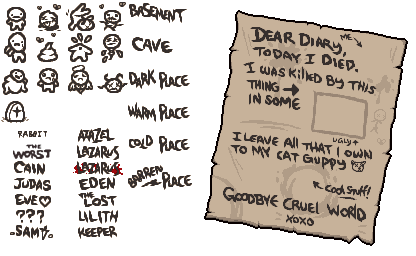 BASEMENT
CAVE
DARK PLACE
WARM PLACE
COLD PLACE
BARREN PLACE
RABBIT
THE WORST
CAIN
JUDAS
EVE♡
???
-SAMS-
AZAZEL
LAZARUS
LAZARUS
EDEN
THE LOST
LILITH
KEEPER
DEAR DIARY,
ME
TODAY I DIED.
I WAS KILLED BY THIS
THING →
IN SOME
UGLY↑
I LEAVE ALL THAT I OWN
TO MY CAT GUPPY
↖ COOL STUFF!
GOODBYE CRUEL WORLD
XOXO